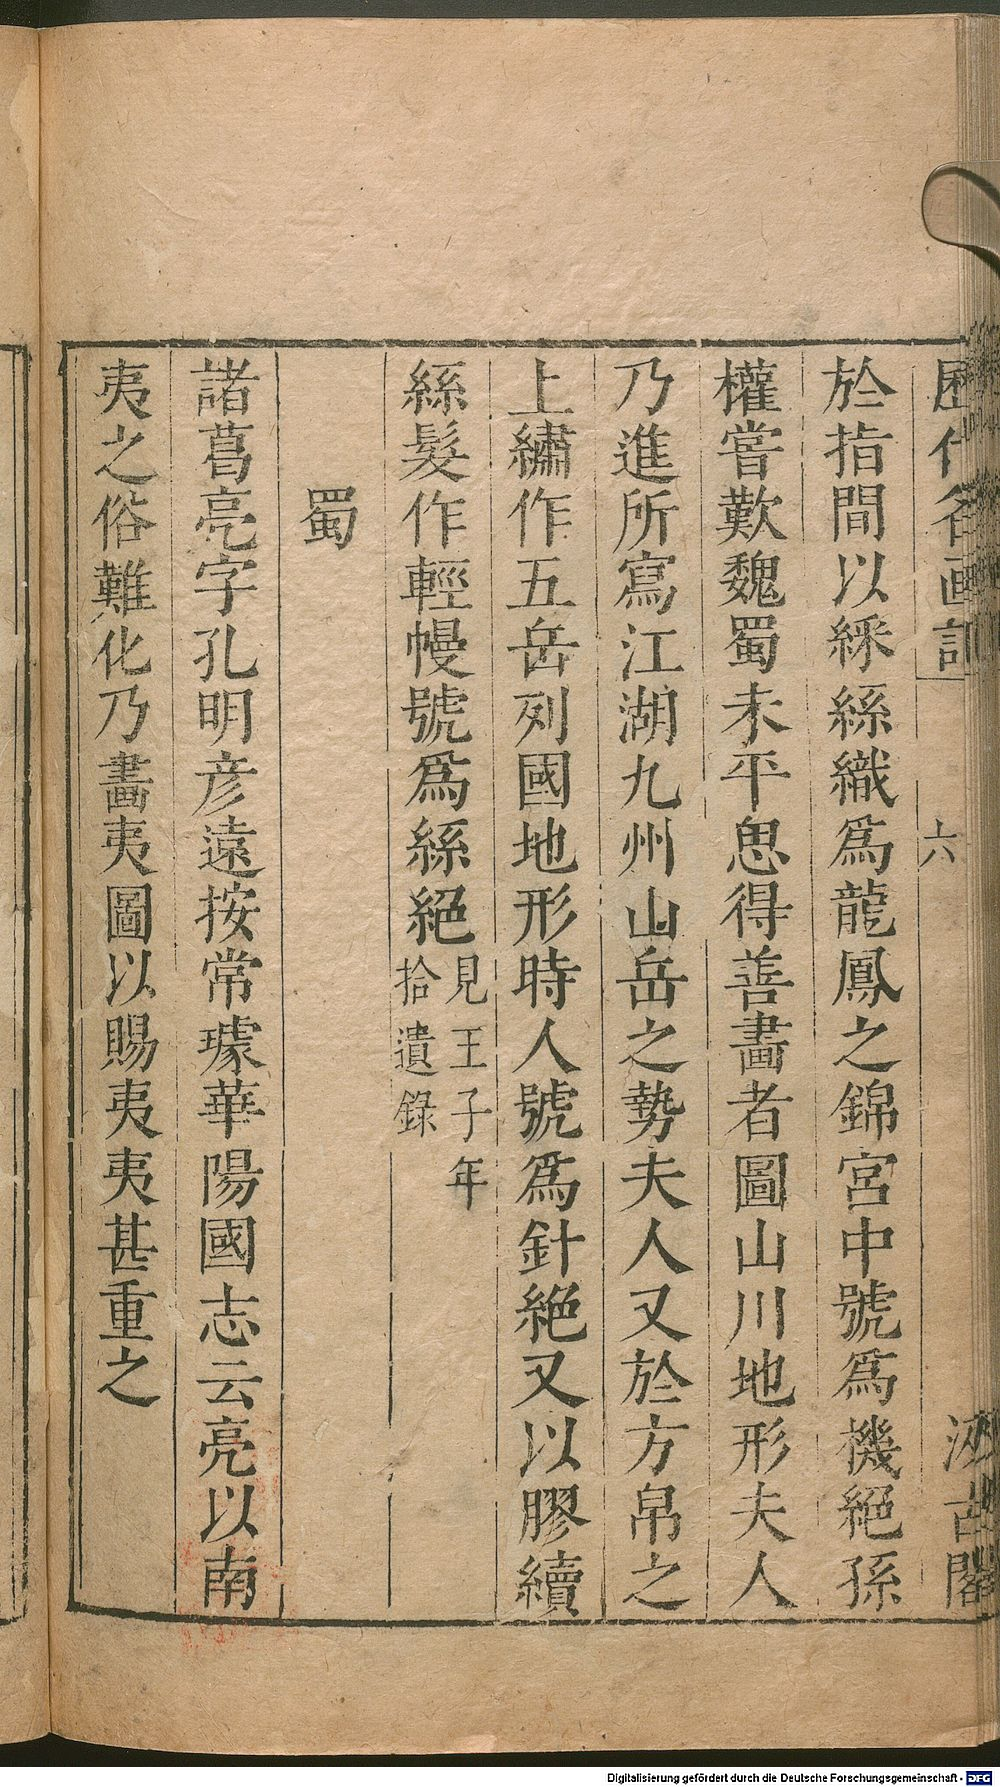 歷代名画記
六
汲古閣
於指間以綵絲織爲龍鳳之錦宮中號爲機絕孫
權嘗歎魏蜀未平思得善畫者圖山川地形夫人
乃進所寫江湖九州山岳之勢夫人又於方帛之
上繡作五岳列國地形時人號爲針絕又以膠續
絲髮作輕幔號爲絲絕
見王子年
拾遺錄
蜀
諸葛亮字孔明彦遠按常璩華陽國志云亮以南
夷之俗難化乃畫夷圖以賜夷夷甚重之
Digitalisierung gefördert durch die Deutsche Forschungsgemeinschaft - DFG